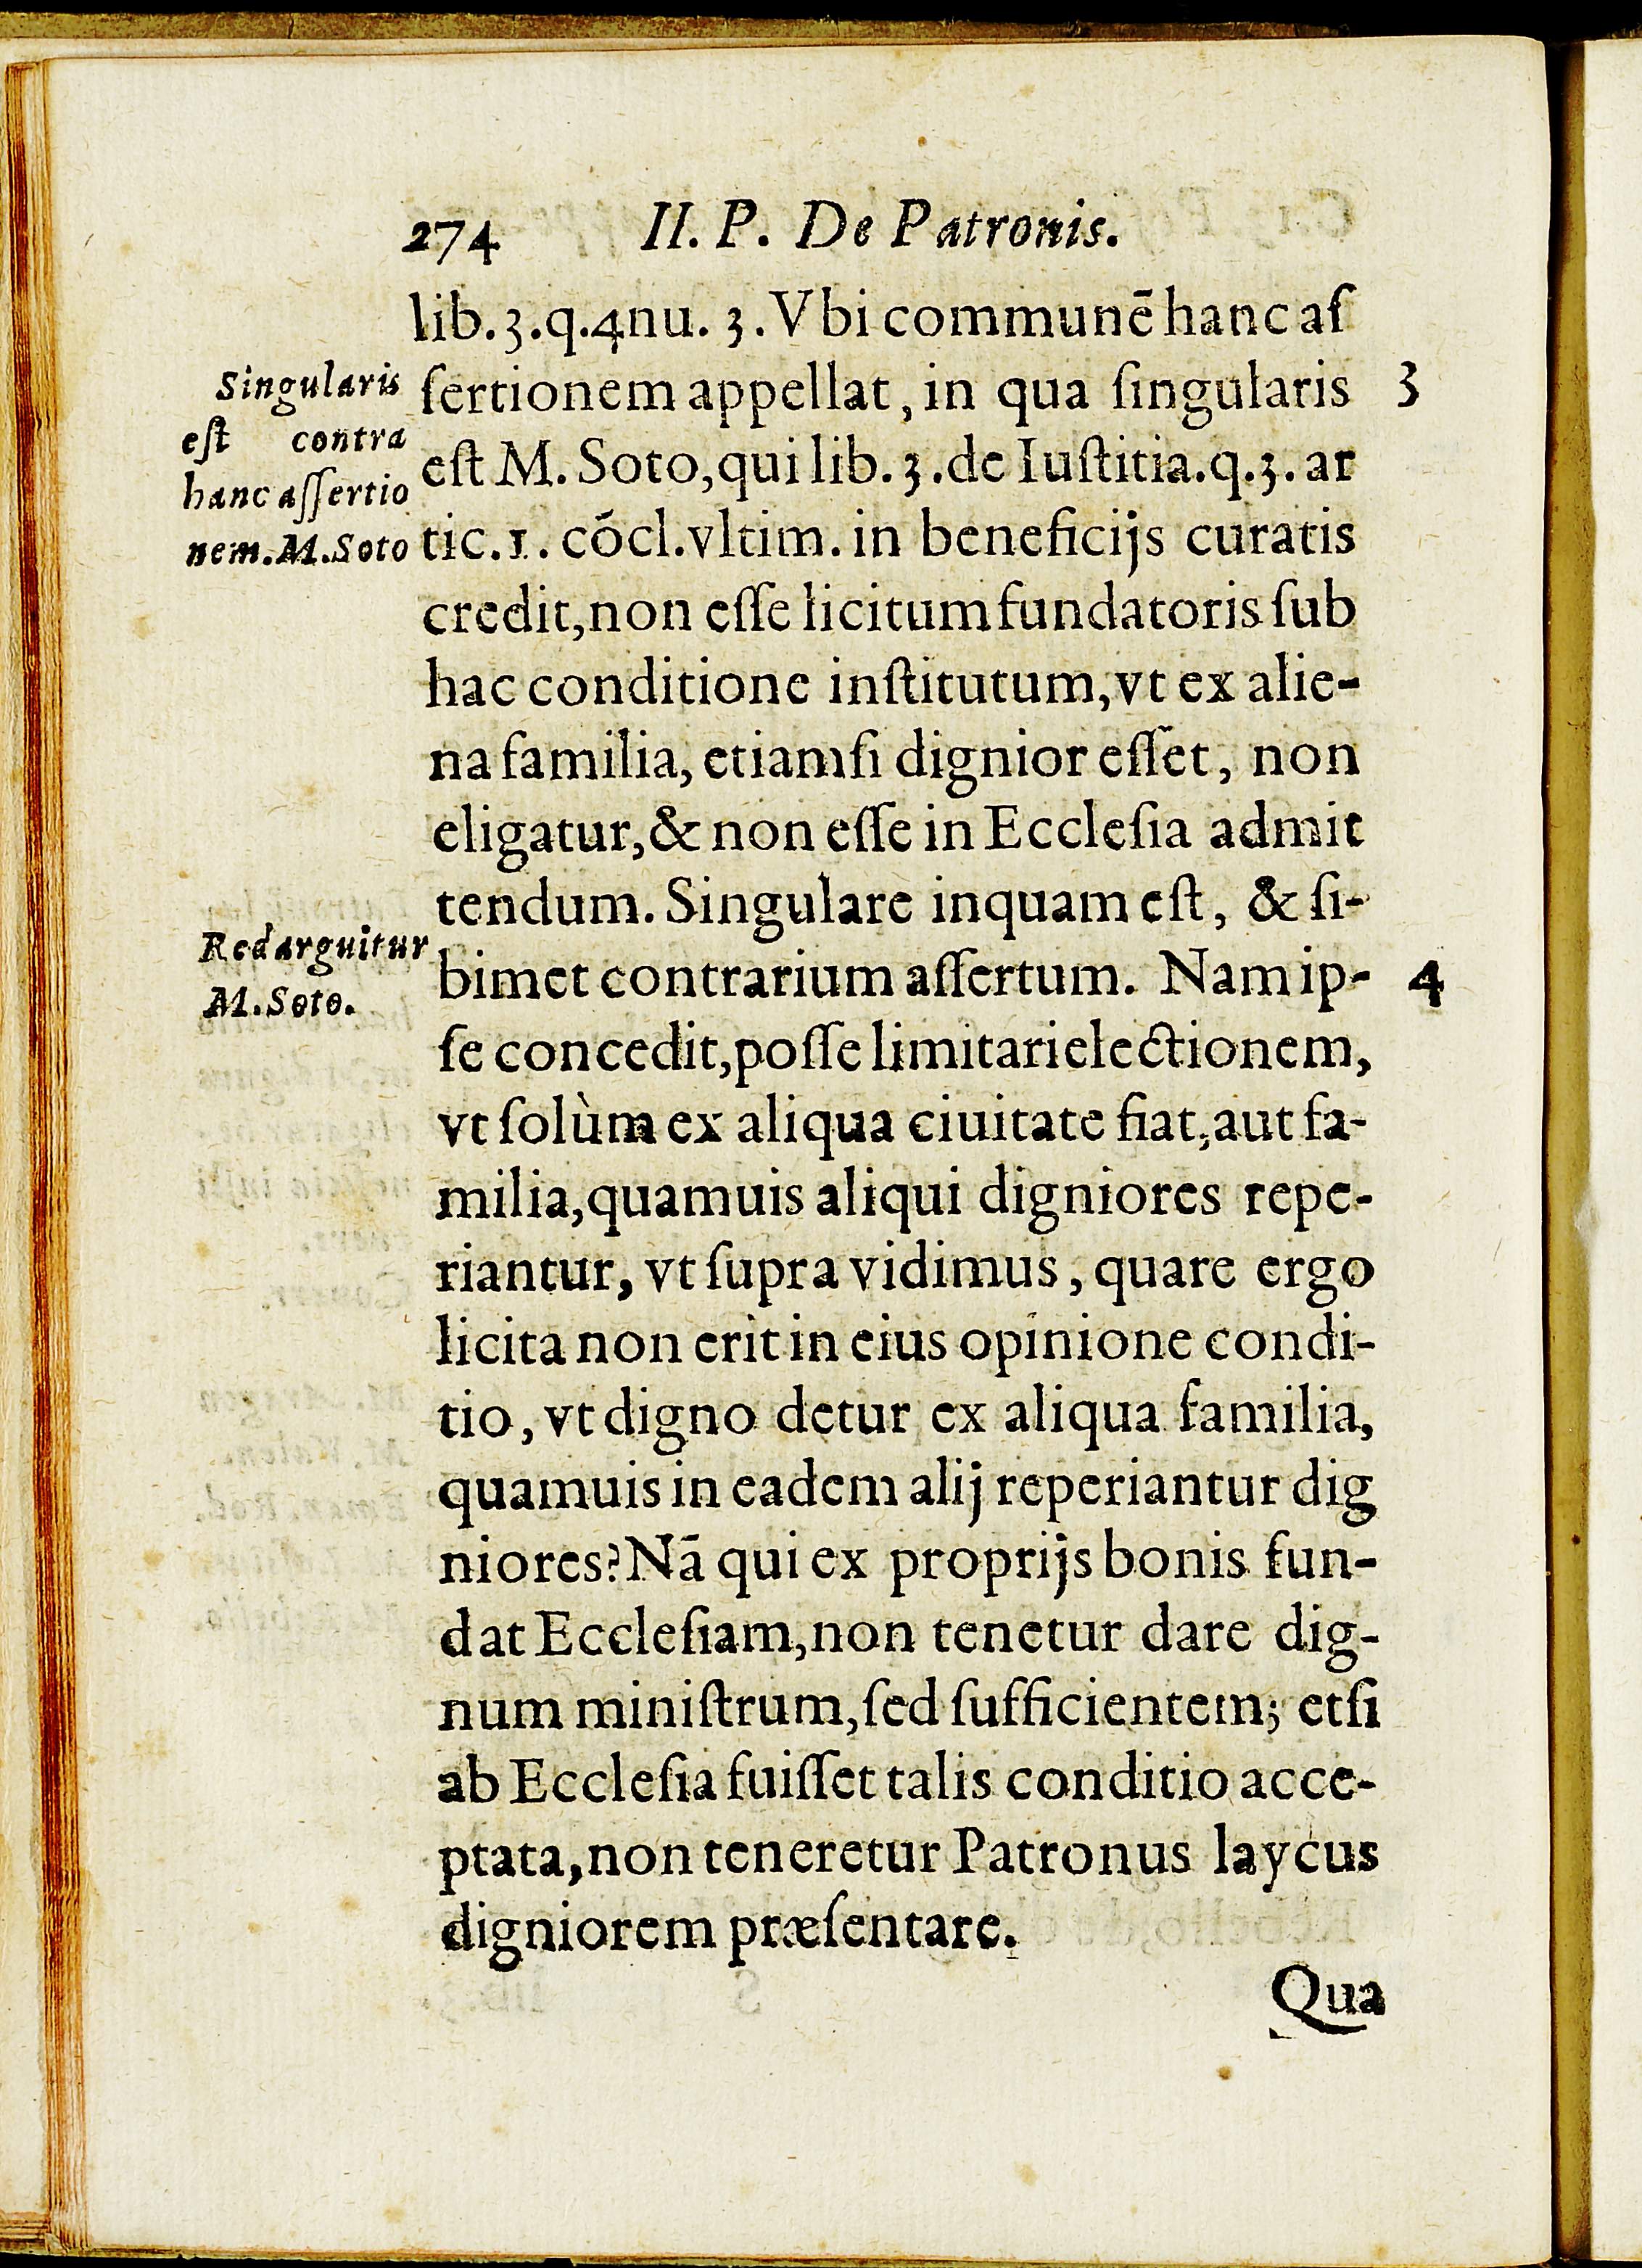 274 II. P. De Patronis.
lib.3.q.4nu. 3. Vbi communē hanc aſ
ſertionem appellat, in qua ſingularis 3
eſt M. Soto, qui lib.3.de Iuſtitia.q.3. ar
tic.1. cōcl.vltim. in beneficijs curatis
credit, non eſſe licitum fundatoris ſub
hac conditione inſtitutum, vt ex alie-
na familia, etiamſi dignior eſſet, non
eligatur, & non eſſe in Eccleſia admit
tendum. Singulare inquam eſt, & ſi-
bimet contrarium aſſertum. Nam ip- 4
ſe concedit, poſſe limitari electionem,
vt ſolùm ex aliqua ciuitate fiat, aut fa-
milia, quamuis aliqui digniores repe-
riantur, vt ſupra vidimus, quare ergo
licita non erit in eius opinione condi-
tio, vt digno detur ex aliqua familia,
quamuis in eadem alij reperiantur dig
niores? Nā qui ex proprijs bonis fun-
dat Eccleſiam, non tenetur dare dig-
num miniſtrum, ſed ſufficientem; etſi
ab Eccleſia fuiſſet talis conditio acce-
ptata, non teneretur Patronus laycus
digniorem præſentare.
Qua
Singularis
eſt contra
hanc aſſertio
nem. M. Soto
Redarguitur
M. Soto.